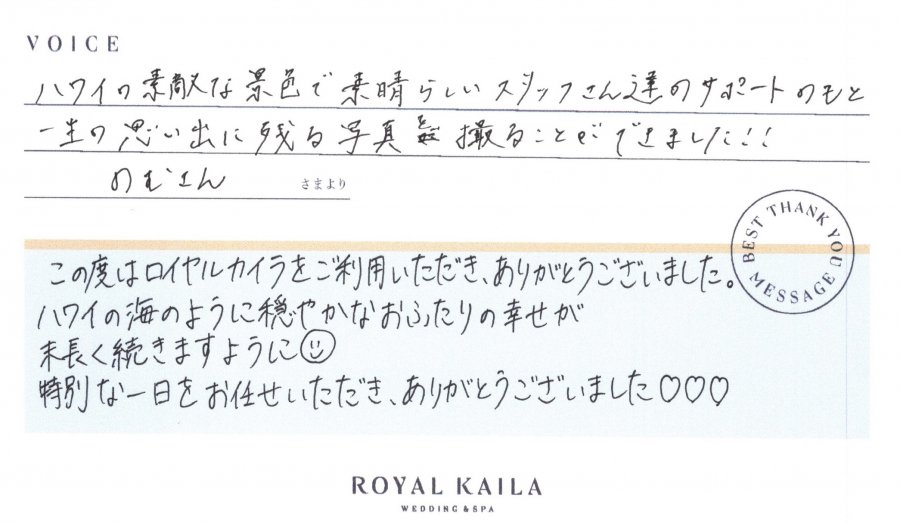 VOICE
ハワイの素敵な景色で素晴らしいスタッフさん達のサポートのもと
一生の思い出に残る写真 撮ることができました!!
のむさん さまより
BEST THANK YOU MESSAGE
この度はロイヤルカイラをご利用いただき、ありがとうございました。
ハワイの海のように穏やかなおふたりの幸せが
末長く続きますように☺
特別な一日をお任せいただき、ありがとうございました♡♡♡
ROYAL KAILA
WEDDING & SPA